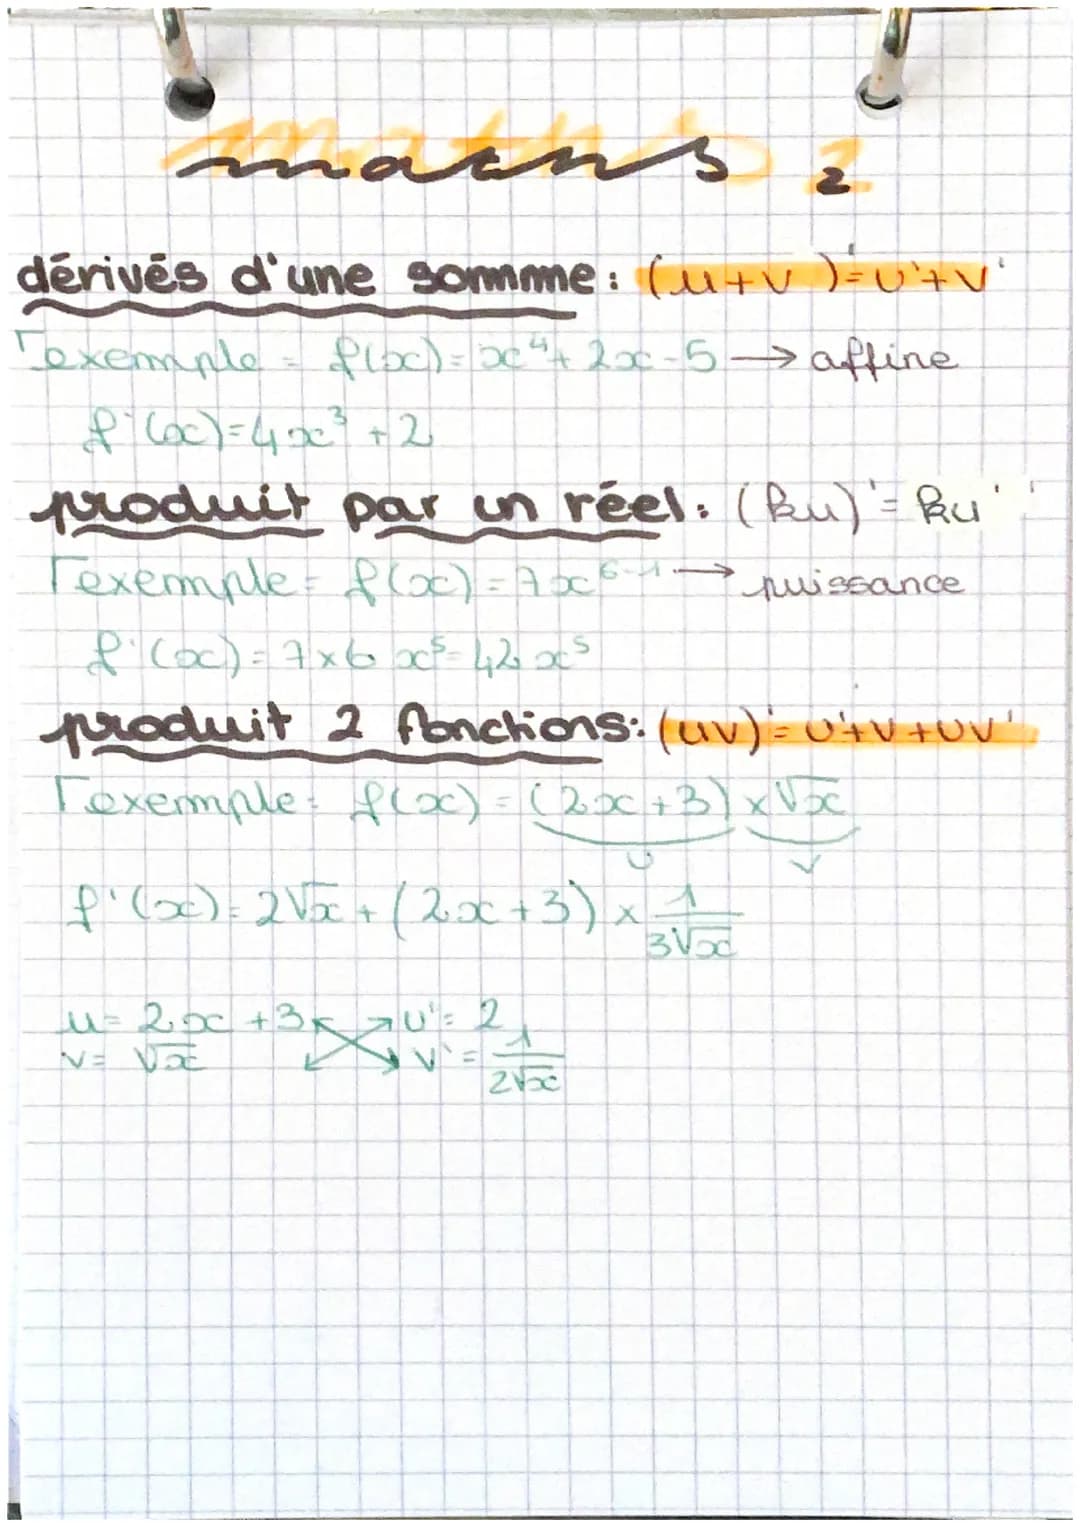 maths 2
dérivés d'une somme : (u+v)'=u'+v'
exemple = f(x)=x⁴+2x-5 → affine
f'(x)=4x³+2
produit par un réel : (ku)'= ku'
exemple = f(x)=7x⁶⁻¹ → puissance
f'(x)=7×6x⁵=42x⁵
produit 2 fonctions: (uv)'=u'+v+uv'
exemple = f(x)=(2x+3)×√x
u v
f'(x)=2√x+(2x+3)×1/3√x
u=2x+3 u'=2
v=√x v'=1/2√x